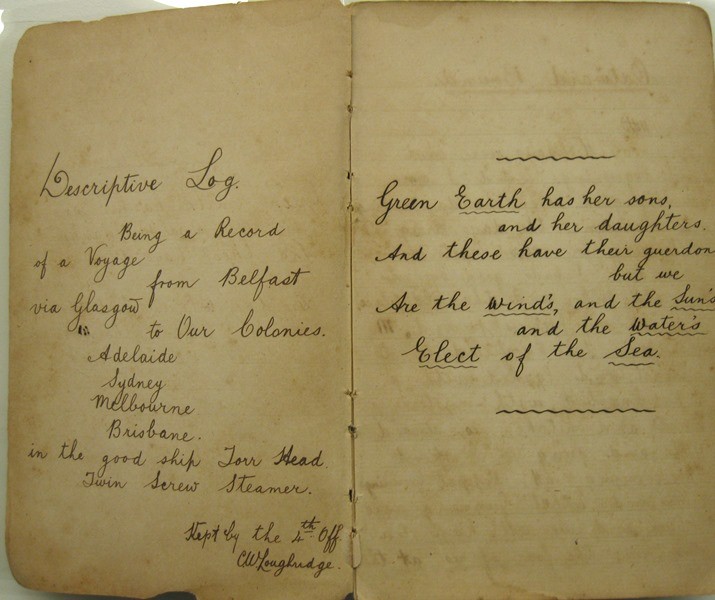 Descriptive Log.
Being a Record
of a Voyage
from Belfast
via Glasgow
to Our Colonies.
Adelaide
Sydney
Melbourne
Brisbane.
in the good ship Torr Head.
Twin Screw Steamer.
Kept by the 4th Off.
CWLoughridge.
Green Earth has her sons,
and her daughters.
And these have their guerdon
but we
Are the Wind's, and the Sun's
and the Water's
Elect of the Sea.